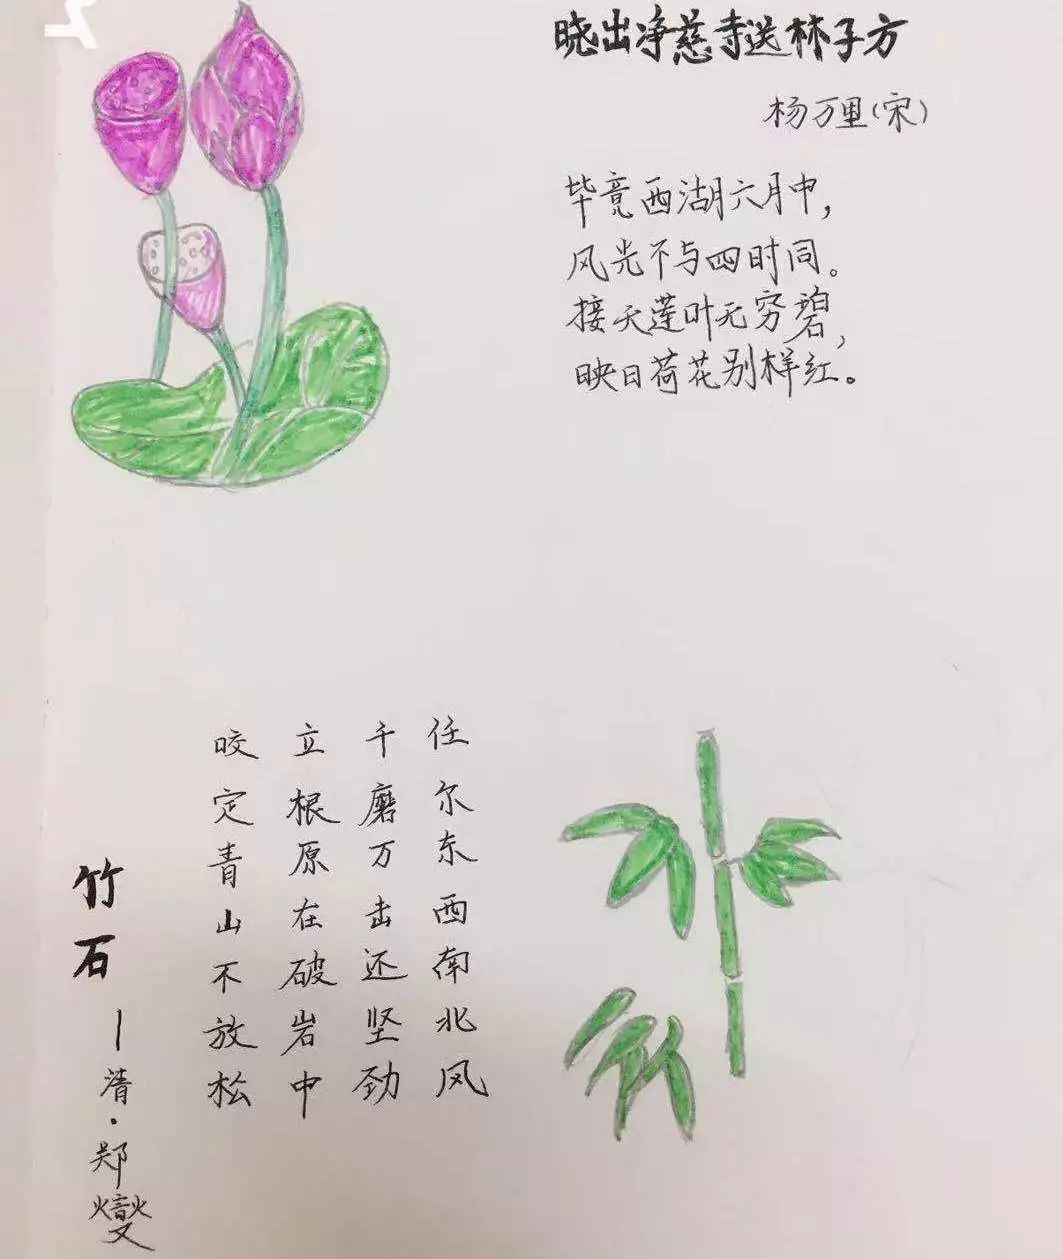 晓出净慈寺送林子方
杨万里(宋)
毕竟西湖六月中，
风光不与四时同。
接天莲叶无穷碧，
映日荷花别样红。
竹石
—清·郑燮
咬定青山不放松
立根原在破岩中
千磨万击还坚劲
任尔东西南北风